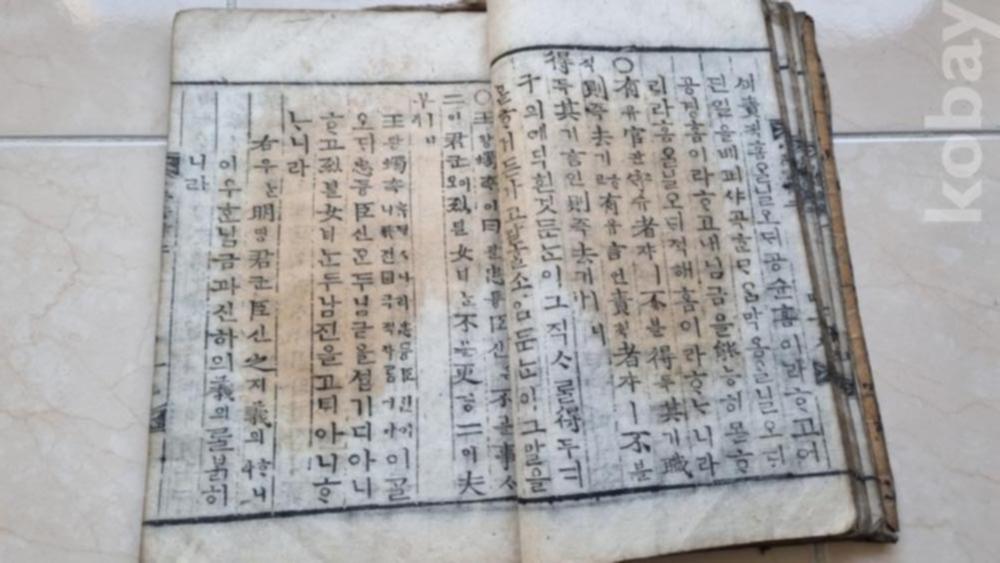 셰責ᄎᆡᆨ홈올닐오ᄃᆡ공슌홈이라ᄒᆞ고어
딘일을베퍼샤곡ᄒᆞᆫᄆᆞᄋᆞᆷ막옴올닐오ᄃᆡ
공경홈이라ᄒᆞ고내님금을能능히몯ᄒᆞ
리라홈올닐오ᄃᆡ적해홈이라ᄒᆞᄂᆞ니라
○有유官관守슈者쟈ㅣ不블得득其기職
직則즉去거ᄒᆞ고有유言언責ᄎᆡᆨ者쟈ㅣ不블
得득其기言언則즉去거ㅣ니
구의예딕흰것둔ᄂᆞᆫ이그직ᄉᆞᄅᆞᆯ得득디
몯ᄒᆞ거든가고말ᄉᆞᆷ소임둔ᄂᆞᆫ이그말을
○王왕蠋쵹이曰왈忠튱臣신은不블事ᄉᆞ
二이君군이오烈녈女녀ᄂᆞᆫ不블更ᄀᆡᆼ二이夫
부ㅣ니
王왕蠋쵹이 ᄀᆞᆯ
오ᄃᆡ忠튱臣신은두님금을셤기디아니
ᄒᆞ고烈녈女녀ᄂᆞᆫ두남진을고티아니ᄒᆞ
ᄂᆞ니라
右우ᄂᆞᆫ明명君군臣신之지義의ᄒᆞ니
이우ᄂᆞᆫ님금과신하의義의ᄅᆞᆯᄇᆞᆰ히
니라
kobay